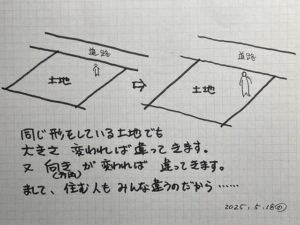 道路
土地
道路
土地
同じ形をしている土地でも
大きさ 変われば違ってきます。
又 向き が変われば 違ってきます。
(方角)
まして、住む人も みんな違うのだから……
2025.5.18㊐